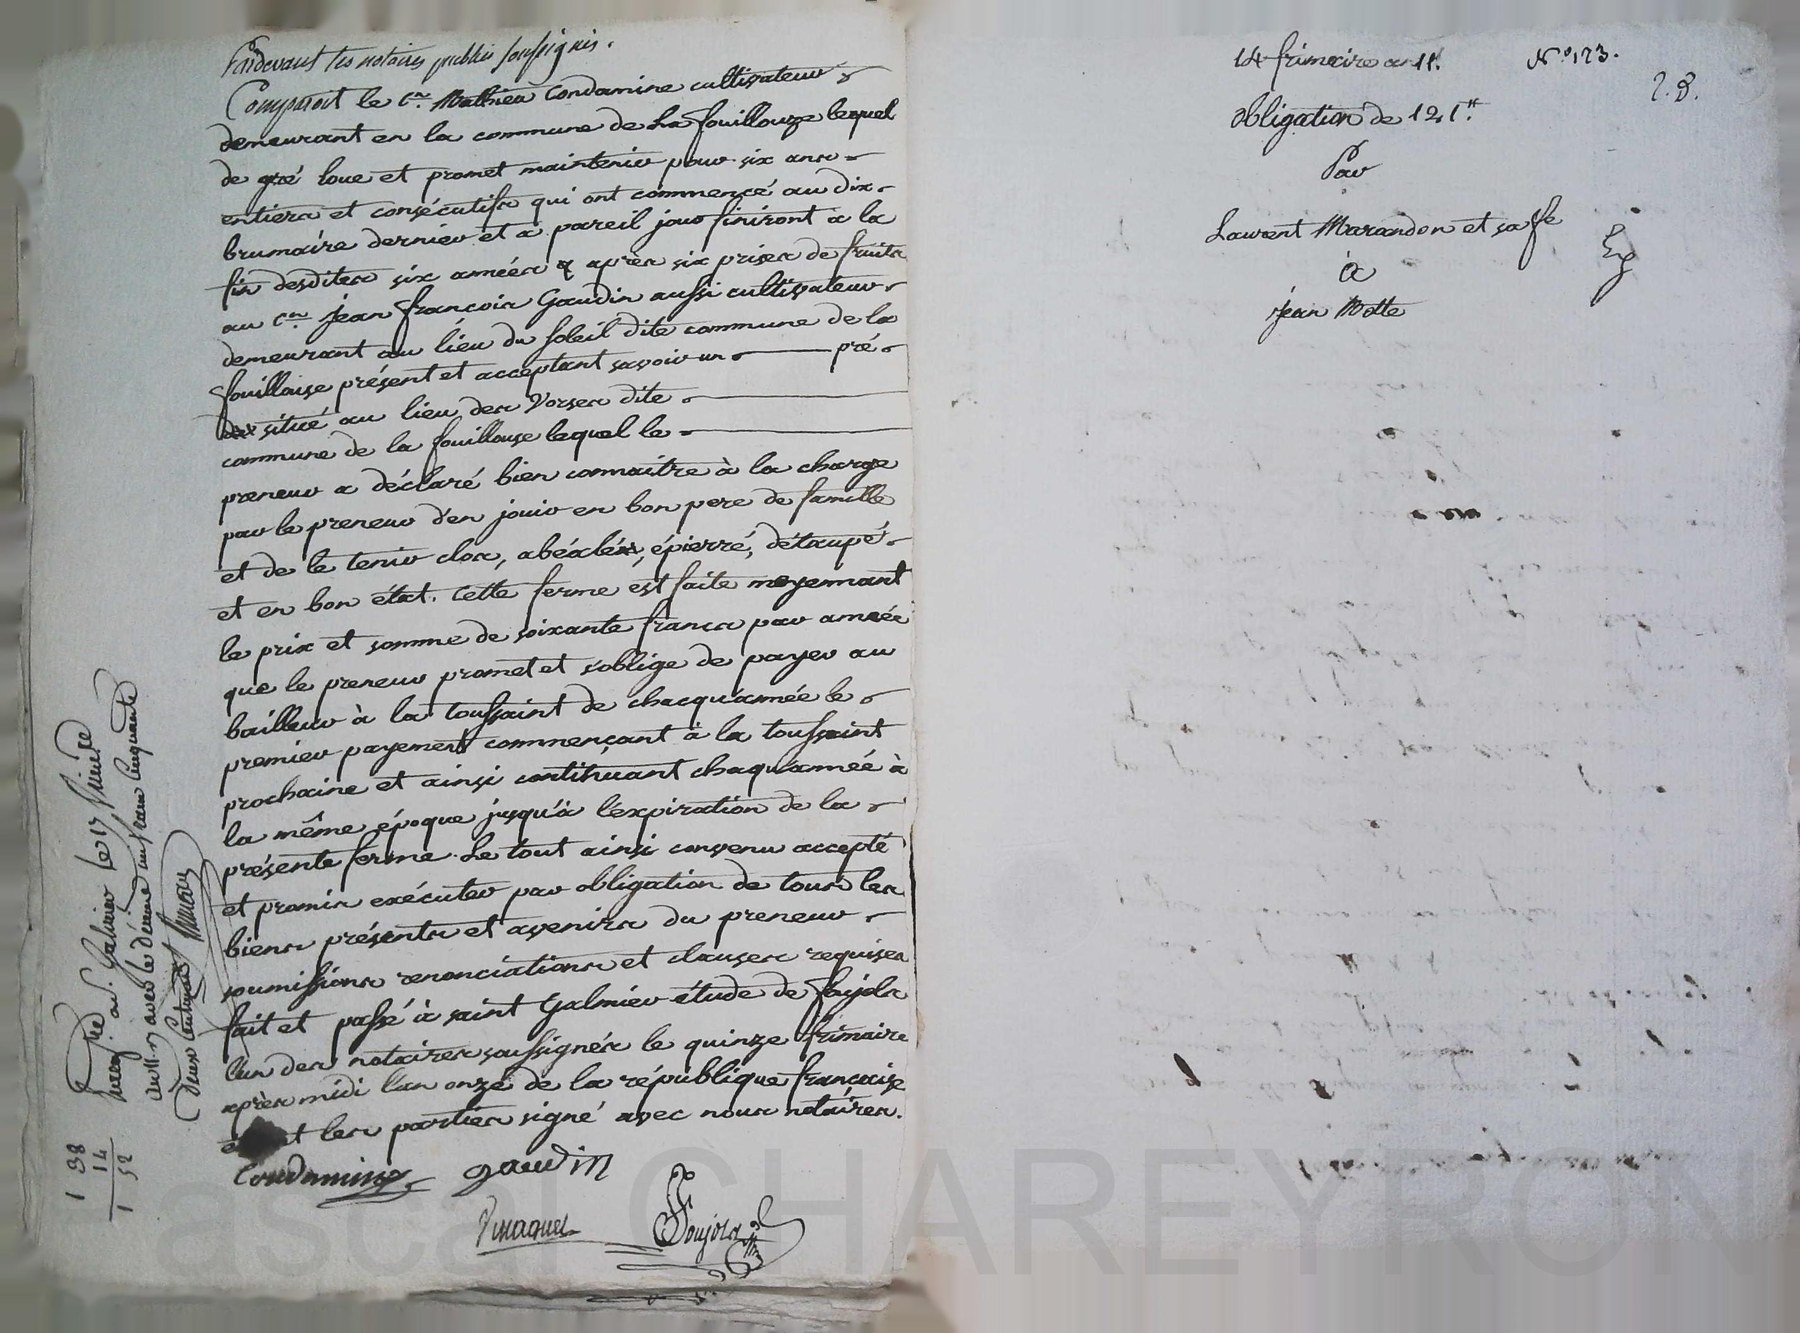 Pardevant les notaires publics soussignés.
Comparoit le Cen. Mathieu Condamine cultivateur
demeurant en la commune de La fouillouze lequel
de gré loue et promet maintenir pour six ans
entiers et consécutifs qui ont commencé au dix
brumaire dernier et a pareil jour finiront a la
fin desdites six années & après six prises de fruits
au Cen jean françois Gaudin aussi cultivateur
demeurant au lieu du Soleil dite commune de la
fouillouse présent et acceptant savoir un pré
situé au lieu des Vorses dite
commune de la fouillouse lequel le
preneur a déclaré bien connaitre à la charge
par le preneur d'en jouir en bon pere de famille
et de le tenir clos, abéalé, épierré, détaupé
et en bon état. Cette ferme est faite moyennant
le prix et somme de soixante francs par année
que le preneur promet et s'oblige de payer au
bailleur à la toussaint de chacqu'année le
premier payement commençant à la toussaint
prochaine et ainsi continuant chaqu'année à
la même époque jusqu'à l'expiration de la
présente ferme. Le tout ainsi convenu accepté
et promis exécuter par obligation de tous les
biens présents et avenirs du preneur
soumissions renonciations et clauses requises
fait et passé à saint Galmier étude de foujols
l'un des notaires soussignés le quinze frimaire
après midi l'an onze de la république française
les parties signé avec nous notaires.
Condamine gaudin
Foujols
Enreg.tré à St. Galmier le 17 frimaire
an 11. avec le décime un franc cinquante
deux centimes
1 38
14
1 52
14 frimaire an 11. N.º 123.
2. 8.
obligation de 121 ₶.
Par
Laurent Marandon et sa fe
à
jean Motte
ascal CHAREYRON